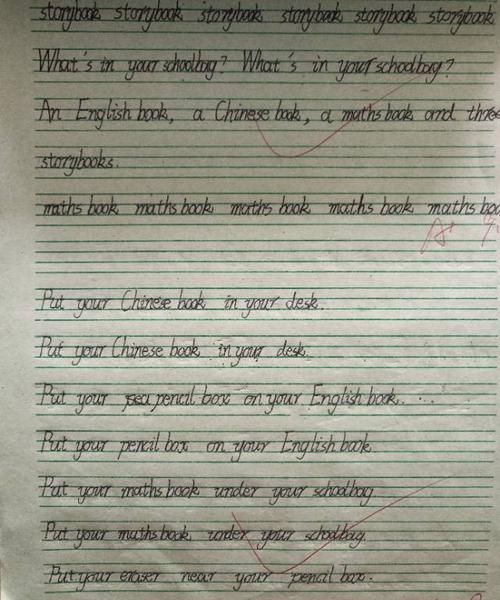 storybook storybook storybook storybook storybook storybook
What's in your schoolbag? What's in your schoolbag?
An English book, a Chinese book, a maths book and three
storybooks.
maths book maths book maths book maths book maths boo
A+
Put your Chinese book in your desk.
Put your Chinese book in your desk.
Put your pea pencil box on your English book.
Put your pencil box on your English book
Put your maths book under your schoolbag
Put your maths book under your schoolbag.
Put your eraser near your pencil box.